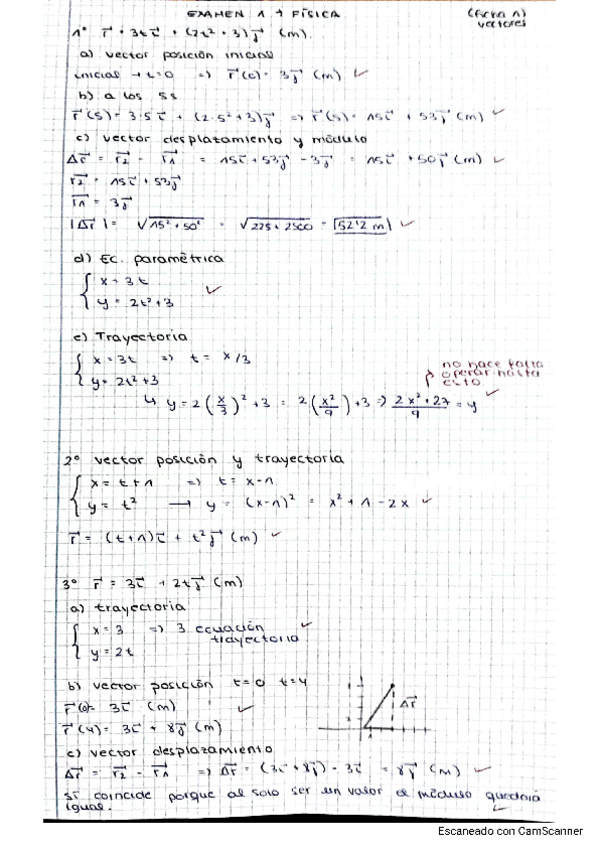 EXAMEN 1 → FÍSICA
(ficha 1)
vectores
1º r⃗ = 3t i⃗ + (2t² + 3) j⃗ (m).
a) vector posición inicial
inicial → t=0 => r⃗(0) = 3j⃗ (m) ✓
b) a los 5s
r⃗(5) = 3·5 i⃗ + (2·5²+3) j⃗ => r⃗(5) = 15i⃗ + 53j⃗ (m) ✓
c) vector desplazamiento y módulo
Δr⃗ = r⃗2 - r⃗1 = 15i⃗ + 53j⃗ - 3j⃗ = 15i⃗ + 50j⃗ (m) ✓
r⃗2 = 15i⃗ + 53j⃗
r⃗1 = 3j⃗
|Δr⃗| = √(15² + 50²) = √(225 + 2500) = 52'2 m ✓
d) Ec. paramétrica
x = 3t
y = 2t²+3 ✓
e) Trayectoria
x = 3t => t = x/3
y = 2t²+3
no hace falta
operar hasta
esto
↳ y = 2(x/3)² + 3 = 2(x²/9) + 3 => (2x² + 27)/9 = y ✓
2º vector posición y trayectoria
x = t + 1 => t = x-1
y = t² → y = (x-1)² = x² + 1 - 2x ✓
r⃗ = (t+1) i⃗ + t² j⃗ (m) ✓
3º r⃗ = 3i⃗ + 2t j⃗ (m)
a) trayectoria
x = 3 => 3 ecuación ✓
trayectoria
y = 2t
b) vector posición t=0 t=4
r⃗(0) = 3i⃗ (m) ✓
r⃗(4) = 3i⃗ + 8j⃗ (m)
Δr⃗
c) vector desplazamiento
Δr⃗ = r⃗2 - r⃗1 => Δr⃗ = (3i⃗ + 8j⃗) - 3i⃗ = 8j⃗ (m) ✓
sí coincide porque al solo ser un valor el módulo quedará
igual. ✓
Escaneado con CamScanner